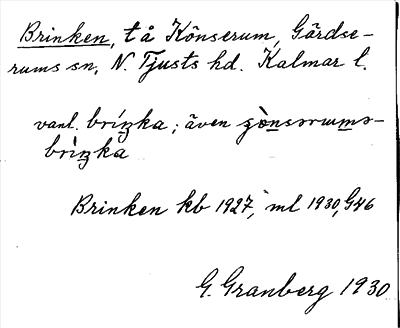 Brinken, t å Könserum, Gärdse-
rums sn, N. Tjusts hd. Kalmar l.
vanl. bríŋka; även
brìŋka
Brinken kb 1927, ml 1930, G46
G. Granberg 1930